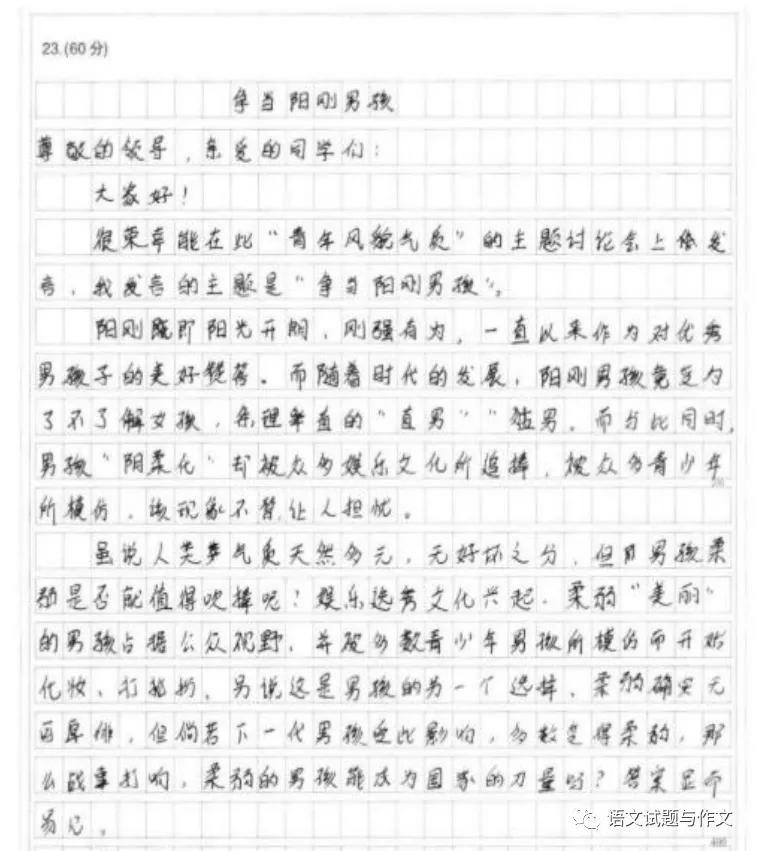 23.(60 分)
争当阳刚男孩
尊敬的领导，亲爱的同学们：
大家好！
很荣幸能在此“青年风貌气质”的主题讨论会上做发
言，我发言的主题是“争当阳刚男孩”。
阳刚既即阳光开朗，刚强有为，一直以来作为对优秀
男孩子的美好赞誉。而随着时代的发展，阳刚男孩竟变为
了不了解女孩，条理笨直的“直男”“猛男。而与此同时，
男孩“阴柔化”却被众多娱乐文化所追捧，被众多青少年
所模仿，该现象不禁让人担忧。
虽说人类气质天然多元，无好坏之分，但男孩柔
弱是否就值得吹捧呢？娱乐选秀文化兴起，柔弱“美丽”
的男孩占据公众视野，并被多数青少年男孩所模仿而开始
化妆、打扮，另说这是男孩的另一个选择，柔弱确实无
可厚非，但倘若下一代男孩受此影响，多数变得柔弱，那
么战争打响，柔弱的男孩能成为国家的力量吗？答案显而
易见。
语文试题与作文
400